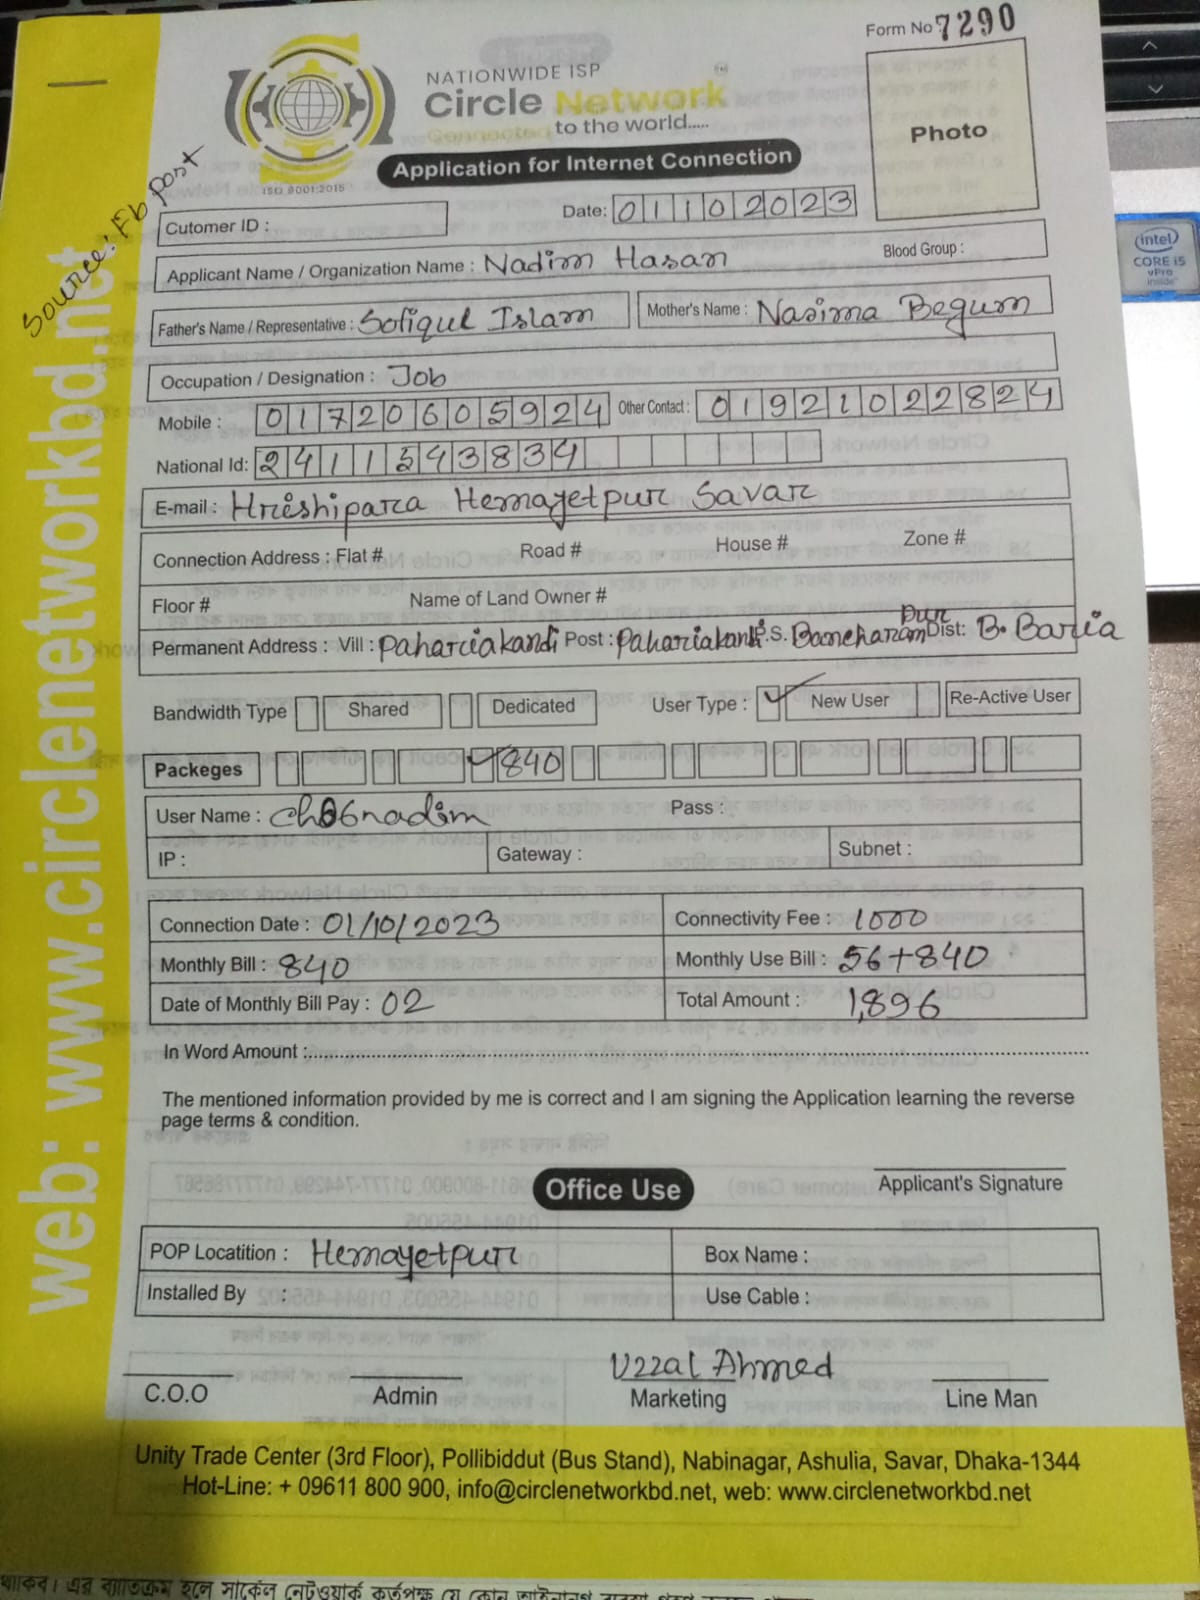 Form No 7290
NATIONWIDE ISP
Circle Network
Connected to the world.....
ISO 9001:2015
Application for Internet Connection
Photo
Source: Fb post
Cutomer ID :
Date: 01102023
Applicant Name / Organization Name : Nadim Hasan
Blood Group :
Father's Name / Representative : Sofiqul Islam
Mother's Name : Nasima Begum
Occupation / Designation : Job
Mobile : 01720605924 Other Contact : 01921022824
National Id: 2411543834
E-mail : Hrishipara Hemayetpur Savar
Connection Address : Flat # Road # House # Zone #
Floor # Name of Land Owner #
Permanent Address : Vill : Pahariakandi Post : Pahariakandi P.S. Bancharampur Dist: B. Baria
Bandwidth Type Shared Dedicated User Type : ✓ New User Re-Active User
Packeges ✓ 840
User Name : ch06nadim Pass :
IP : Gateway : Subnet :
Connection Date : 01/10/2023 Connectivity Fee : 1000
Monthly Bill : 840 Monthly Use Bill : 56+840
Date of Monthly Bill Pay : 02 Total Amount : 1,896
In Word Amount :
The mentioned information provided by me is correct and I am signing the Application learning the reverse
page terms & condition.
Applicant's Signature
Office Use
POP Locatition : Hemayetpur Box Name :
Installed By : Use Cable :
Uzzal Ahmed
C.O.O Admin Marketing Line Man
Unity Trade Center (3rd Floor), Pollibiddut (Bus Stand), Nabinagar, Ashulia, Savar, Dhaka-1344
Hot-Line: + 09611 800 900, info@circlenetworkbd.net, web: www.circlenetworkbd.net
web: www.circlenetworkbd.net
intel
CORE i5
vPro
inside